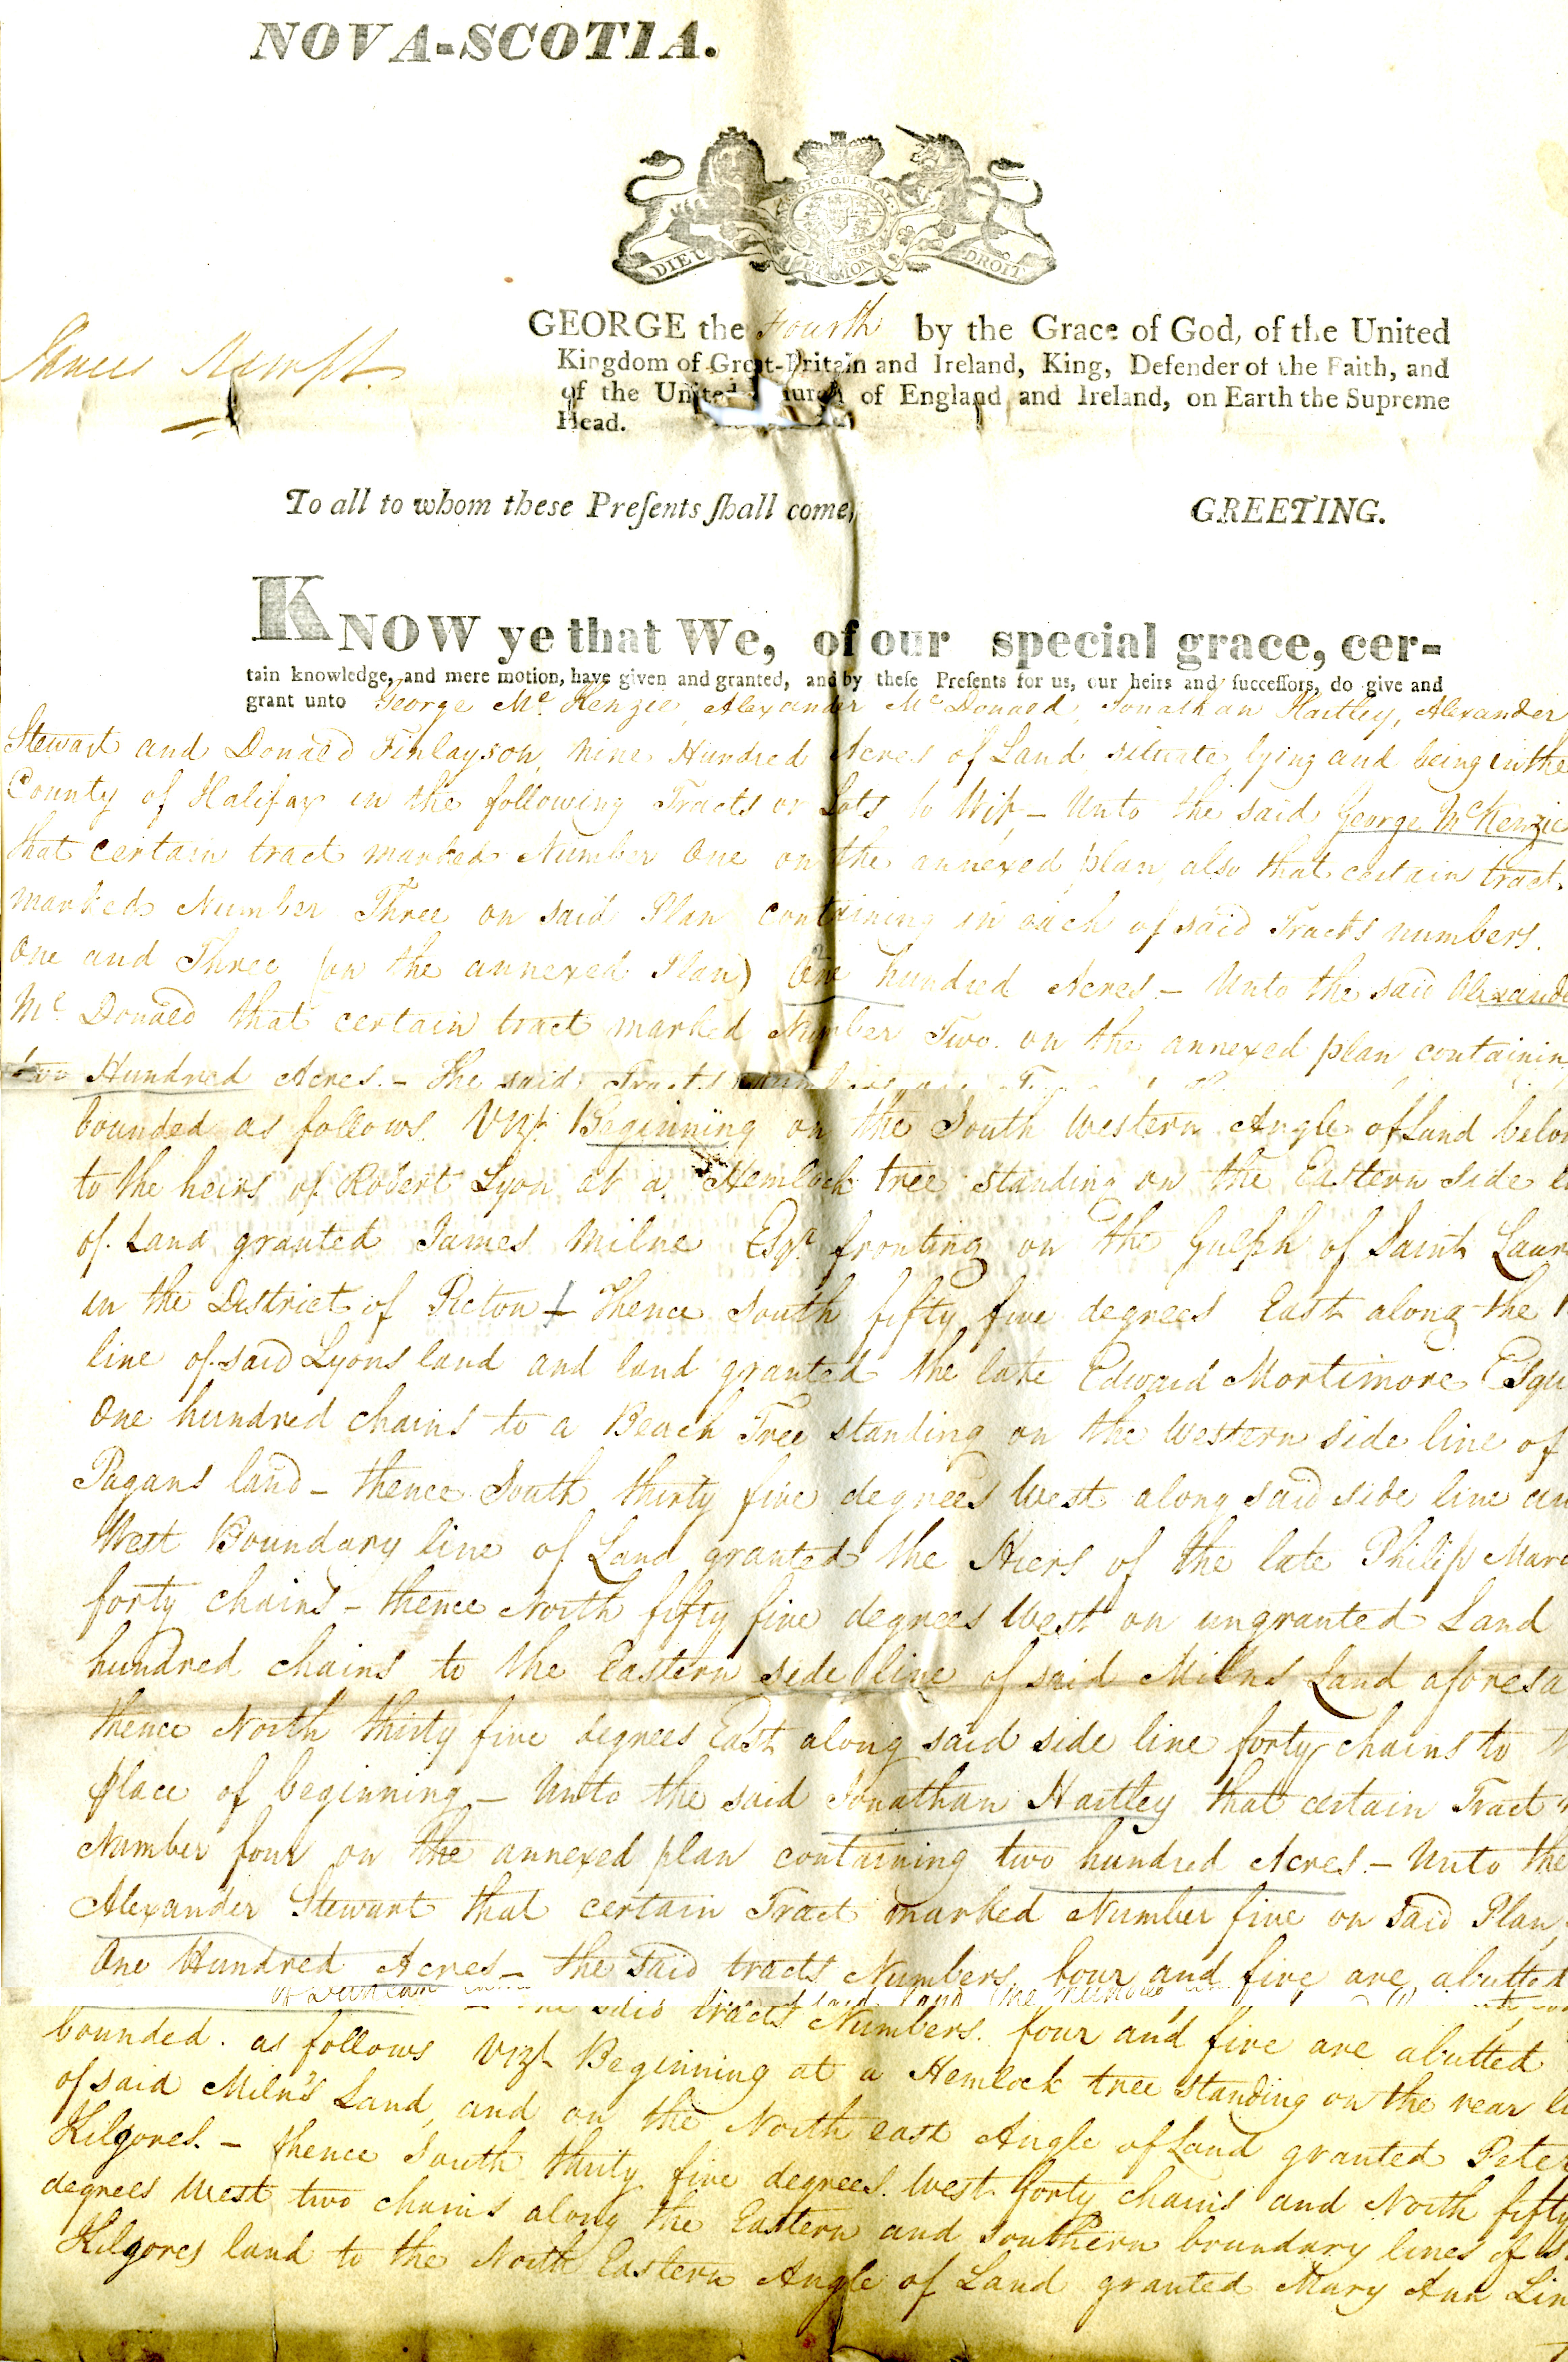 NOVA-SCOTIA.
DIEU ET MON DROIT
GEORGE the Fourth by the Grace of God, of the United
James Kempt.
Kingdom of Great-Britain and Ireland, King, Defender of the Faith, and
of the United Church of England and Ireland, on Earth the Supreme
Head.
To all to whom these Preſents ſhall come, GREETING.
KNOW ye that We, of our special grace, cer-
tain knowledge, and mere motion, have given and granted, and by theſe Preſents for us, our heirs and ſucceſſors, do give and
grant unto George Mc Kenzie, Alexander Mc Donald, Jonathan Hartley, Alexander
Stewart and Donald Finlayson, Nine Hundred Acres of Land, situate, lying and being in the
County of Halifax in the following Tracts or Lots, to Wit, – Unto the said George McKenzie
that certain tract marked Number One on the annexed plan, also that certain tract,
marked Number Three on said Plan containing in each of said Tracts numbers.
One and Three (on the annexed Plan) One hundred Acres – Unto the said Alexande
Mc Donald that certain tract marked Number Two on the annexed plan containin
two Hundred Acres. – The said Tracts
bounded as follows Vizt. Beginning on the South Western Angle of Land belon
to the heirs of Robert Lyon at a Hemlock tree standing on the Eastern side li
of Land granted James Milne Esqr. fronting on the Gulph of Saint Laur
in the District of Pictou – Thence South fifty five degrees East along the
line of said Lyons land and land granted the late Edward Mortimore Esqu
One hundred chains to a Beach Tree standing on the Western side line of
Pagans land – thence South thirty five degrees West along said side line an
West Boundary line of Land granted the Hiers of the late Philip Marc
forty chains – thence North fifty five degrees West on ungranted Land
hundred chains to the Eastern side line of said Milns Land aforesa
thence North thirty five degrees East along said side line forty chains to
place of beginning – Unto the said Jonathan Hartley that certain Tract
Number four on the annexed plan containing two hundred Acres. – Unto the
Alexander Stewart that certain Tract marked Number five on said Plan,
One Hundred Acres – the said tracts Numbers four and five are abutted
said tracts Numbers. four and five are abutted
bounded. as follows Vizt. Beginning at a Hemlock tree standing on the rear li
of said Miln's Land, and on the North east Angle of Land granted Peter
Kilgores. – thence South thirty five degrees. West forty chains and North fifty
degrees West two chains along the Eastern and Southern boundary lines of s
Kilgores land to the North Eastern Angle of Land granted Mary Ann Lin